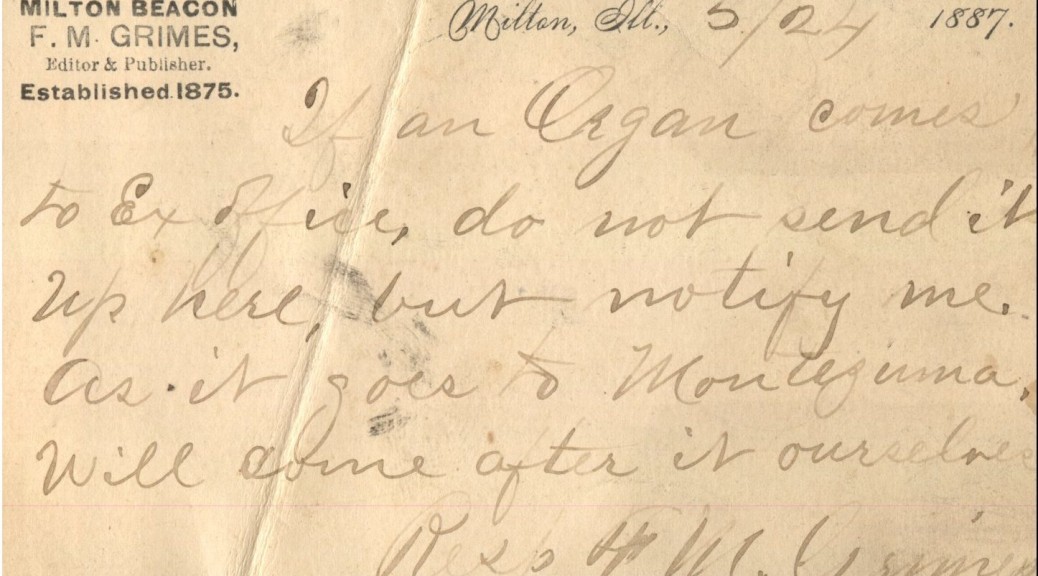 MILTON BEACON
F. M. GRIMES,
Editor & Publisher.
Established 1875.
Milton, Ill., 5/24 1887.
If an Organ comes
to Ex office, do not send it
up here, but notify me.
As it goes to Montezuma,
Will come after it ourselves
Resp F M. Grimes